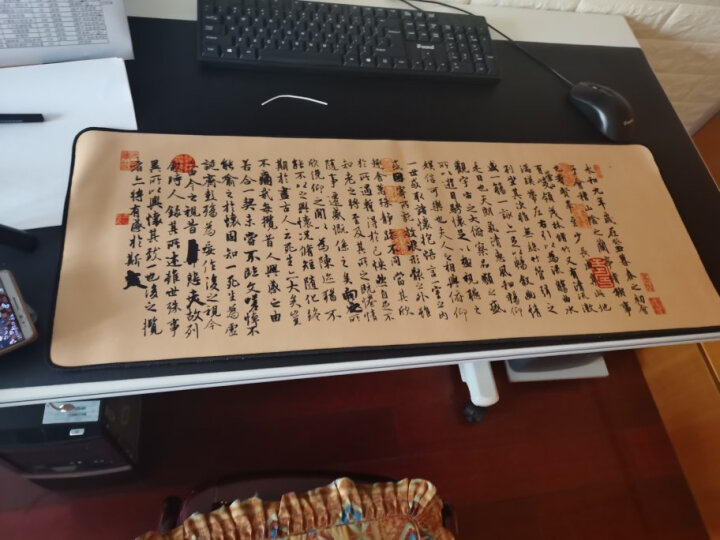 永和九年歲在癸丑暮春之初會
于會稽山陰之蘭亭脩稧事
也群賢畢至少長咸集此地
有崇山峻領茂林脩竹又有清流激
湍暎帶左右引以為流觴曲水
列坐其次雖無絲竹管弦之
盛一觴一詠亦足以暢敘幽情
是日也天朗氣清惠風和暢仰
觀宇宙之大俯察品類之盛
所以遊目騁懷足以極視聽之
娛信可樂也夫人之相與俯仰
一世或取諸懷抱悟言一室之內
或因寄所託放浪形骸之外雖
趣舍萬殊靜躁不同當其欣
於所遇蹔得於己怏然自足不
知老之將至及其所之既惓情
隨事遷感慨係之矣向之所
欣俛仰之間以為陳跡猶不
能不以之興懷況脩短隨化終
期於盡古人云死生亦大矣豈
不痛哉每攬昔人興感之由
若合一契未嘗不臨文嗟悼不
能喻之於懷固知一死生為虛
誕齊彭殤為妄作後之視今
亦由今之視昔悲夫故列
敘時人錄其所述雖世殊事
異所以興懷其致一也後之攬
者亦將有感於斯文